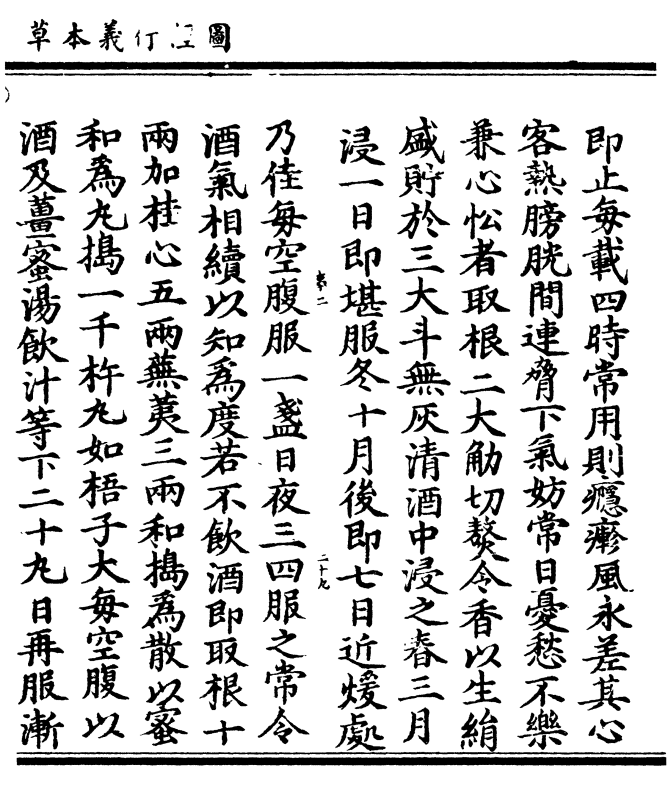 圖經衍義本草
即止每載四時常用則癮瘮風永差其心
客熱膀胱間連脅下氣妨常日憂愁不樂
兼心忪者取根二大觔切熬令香以生絹
盛貯於三大斗無灰清酒中浸之春三月
浸一日即堪服冬十月後即七日近煖處
卷二
二十九
乃佳每空腹服一盞日夜三四服之常令
酒氣相續以知為度若不飲酒即取根十
兩加桂心五兩蕪荑三兩和搗為散以蜜
和為丸搗一千杵丸如梧子大每空腹以
酒及薑蜜湯飲汁等下二十丸日再服漸